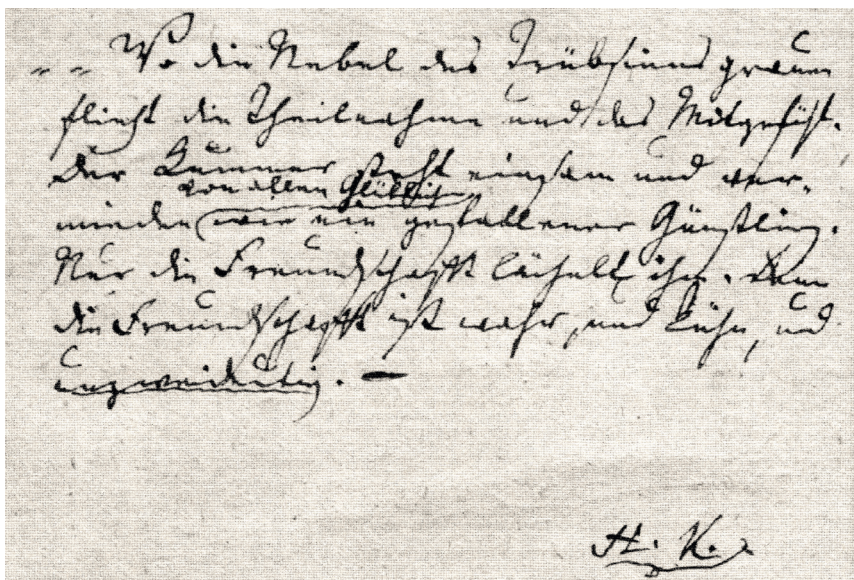 „ „ Wo die Nebel des Trübsinns grauen
flieht die Theilnahme und das Mitgefühl.
Der Kummer steht einsam und ver-
von allen Glücklich
mieden wie ein gefallener Günstling.
Nur die Freundschaft lächelt ihm. Denn
die Freundschaft ist wahr, und kühn, und
unzweideutig. —
H. K.